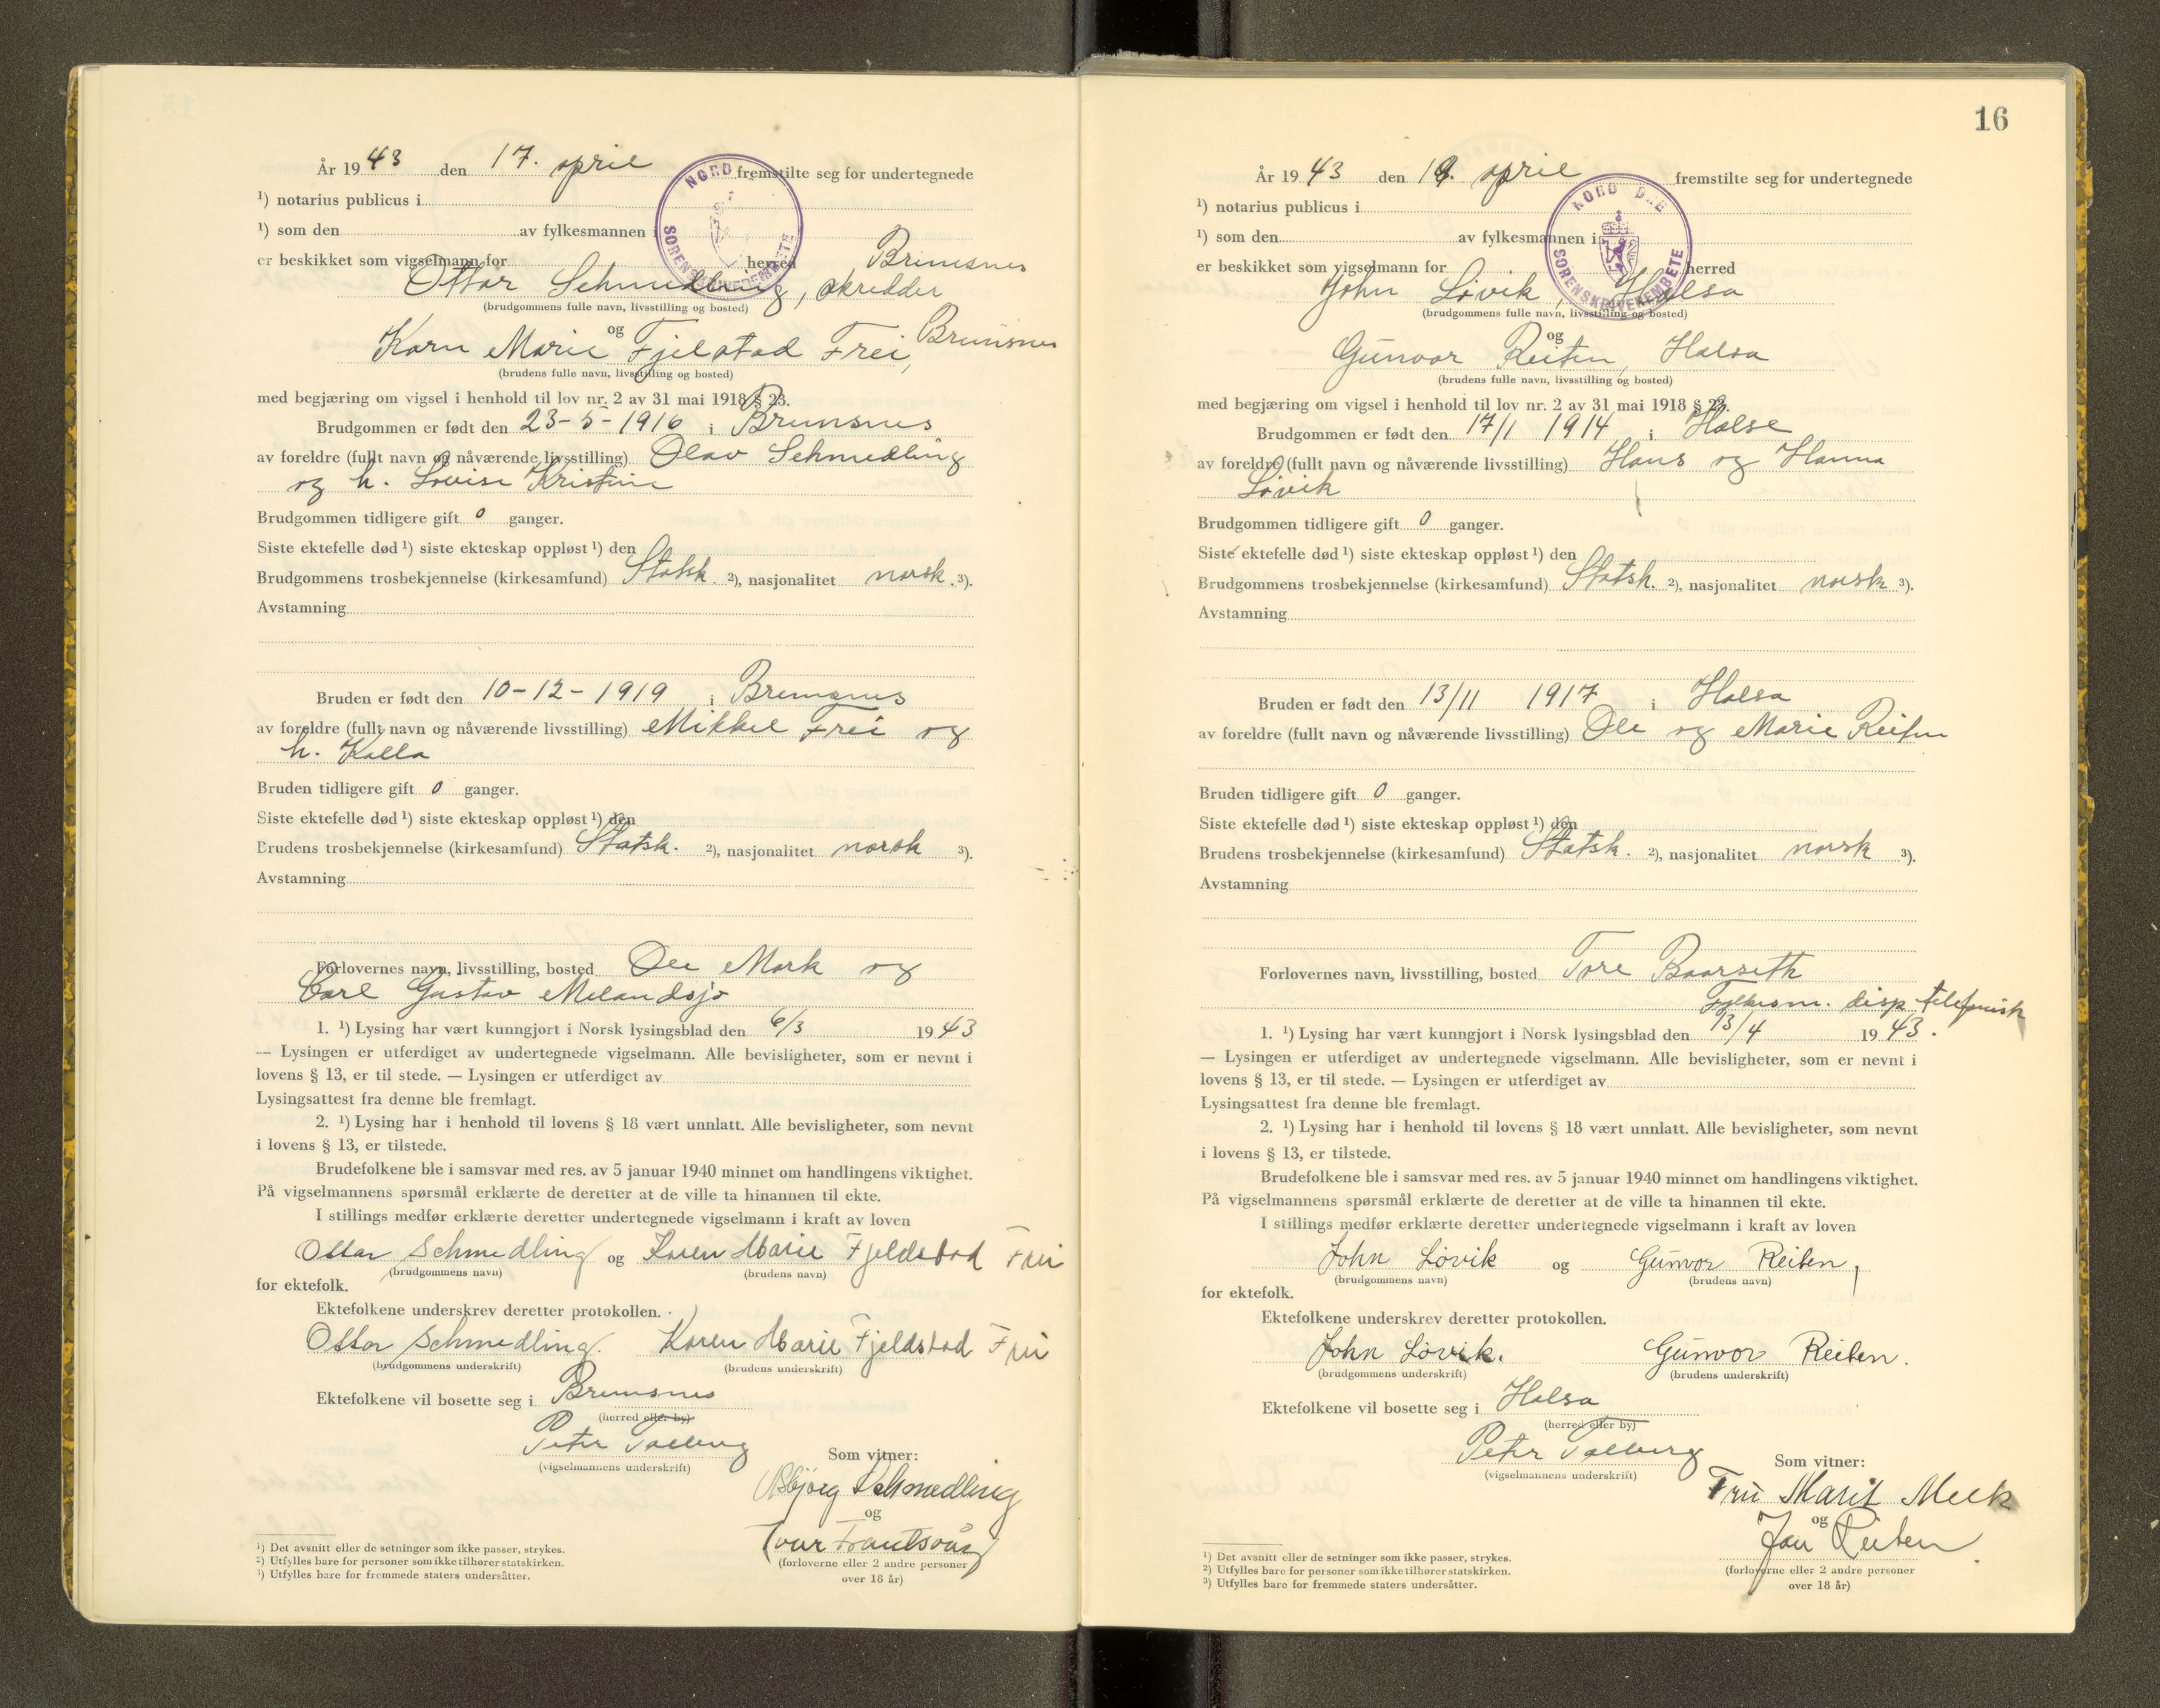 År 1943 den 17. april fremstilte seg for undertegnede
¹) notarius publicus i
¹) som den av fylkesmannen i
er beskikket som vigselmann for herred Bremsnes
Ottar Schmedling, skredder
(brudgommens fulle navn, livsstilling og bosted)
og
Karn Marie Fjelstad Frei, Bremsnes
(brudens fulle navn, livsstilling og bosted)
med begjæring om vigsel i henhold til lov nr. 2 av 31 mai 1918 § 23.
Brudgommen er født den 23-5-1916 i Bremsnes
av foreldre (fullt navn og nåværende livsstilling) Olav Schmedling
og h. Lovise Kristine
Brudgommen tidligere gift 0 ganger.
Siste ektefelle død ¹) siste ekteskap oppløst ¹) den
Brudgommens trosbekjennelse (kirkesamfund) Statsk. ²), nasjonalitet norsk. ³).
Avstamning
Bruden er født den 10-12-1919 i Bremsnes
av foreldre (fullt navn og nåværende livsstilling) Mikkel Frei og
h. Kalla
Bruden tidligere gift 0 ganger.
Siste ektefelle død ¹) siste ekteskap oppløst ¹) den
Brudens trosbekjennelse (kirkesamfund) Statsk. ²), nasjonalitet norsk ³).
Avstamning
Forlovernes navn, livsstilling, bosted Ole Mork og
Carl Gustav Melandsjø
1. ¹) Lysing har vært kunngjort i Norsk lysingsblad den 6/3 1943
— Lysingen er utferdiget av undertegnede vigselmann. Alle bevisligheter, som er nevnt i
lovens § 13, er til stede. — Lysingen er utferdiget av
Lysingsattest fra denne ble fremlagt.
2. ¹) Lysing har i henhold til lovens § 18 vært unnlatt. Alle bevisligheter, som nevnt
i lovens § 13, er tilstede.
Brudefolkene ble i samsvar med res. av 5 januar 1940 minnet om handlingens viktighet.
På vigselmannens spørsmål erklærte de deretter at de ville ta hinannen til ekte.
I stillings medfør erklærte deretter undertegnede vigselmann i kraft av loven
Ottar Schmedling og Karen Marie Fjeldstad Frei
(brudgommens navn) (brudens navn)
for ektefolk.
Ektefolkene underskrev deretter protokollen.
Ottar Schmedling. Karen Marie Fjeldstad Frei
(brudgommens underskrift) (brudens underskrift)
Ektefolkene vil bosette seg i Bremsnes
(herred eller by)
Peter Tallberg
(vigselmannens underskrift)
Som vitner:
Asbjørg Schmedling
og
Ivar Frantsvåg
(forloverne eller 2 andre personer
over 18 år)
¹) Det avsnitt eller de setninger som ikke passer, strykes.
²) Utfylles bare for personer som ikke tilhører statskirken.
³) Utfylles bare for fremmede staters undersåtter.
NORD
SORENSKRIVEREMBETE
16
År 1943 den 19. april fremstilte seg for undertegnede
¹) notarius publicus i
¹) som den av fylkesmannen i
er beskikket som vigselmann for herred
John Løvik, Halsa
(brudgommens fulle navn, livsstilling og bosted)
og
Gunvor Reiten, Halsa
(brudens fulle navn, livsstilling og bosted)
med begjæring om vigsel i henhold til lov nr. 2 av 31 mai 1918 § 23.
Brudgommen er født den 17/1 1914 i Halse
av foreldre (fullt navn og nåværende livsstilling) Hans og Hanna
Løvik
Brudgommen tidligere gift 0 ganger.
Siste ektefelle død ¹) siste ekteskap oppløst ¹) den
Brudgommens trosbekjennelse (kirkesamfund) Statsk. ²), nasjonalitet norsk ³).
Avstamning
Bruden er født den 13/11 1917 i Halsa
av foreldre (fullt navn og nåværende livsstilling) Ole og Marie Reiten
Bruden tidligere gift 0 ganger.
Siste ektefelle død ¹) siste ekteskap oppløst ¹) den
Brudens trosbekjennelse (kirkesamfund) Statsk. ²), nasjonalitet norsk ³).
Avstamning
Forlovernes navn, livsstilling, bosted Tore Baarseth
Fylkesm. disp. telefonisk
1. ¹) Lysing har vært kunngjort i Norsk lysingsblad den 13/4 1943.
— Lysingen er utferdiget av undertegnede vigselmann. Alle bevisligheter, som er nevnt i
lovens § 13, er til stede. — Lysingen er utferdiget av
Lysingsattest fra denne ble fremlagt.
2. ¹) Lysing har i henhold til lovens § 18 vært unnlatt. Alle bevisligheter, som nevnt
i lovens § 13, er tilstede.
Brudefolkene ble i samsvar med res. av 5 januar 1940 minnet om handlingens viktighet.
På vigselmannens spørsmål erklærte de deretter at de ville ta hinannen til ekte.
I stillings medfør erklærte deretter undertegnede vigselmann i kraft av loven
John Løvik og Gunvor Reiten,
(brudgommens navn) (brudens navn)
for ektefolk.
Ektefolkene underskrev deretter protokollen.
John Løvik. Gunvor Reiten.
(brudgommens underskrift) (brudens underskrift)
Ektefolkene vil bosette seg i Halsa
(herred eller by)
Peter Tallberg
(vigselmannens underskrift)
Som vitner:
Fru Marit Meek
og
Jon Reiten.
(forloverne eller 2 andre personer
over 18 år)
¹) Det avsnitt eller de setninger som ikke passer, strykes.
²) Utfylles bare for personer som ikke tilhører statskirken.
³) Utfylles bare for fremmede staters undersåtter.
SORENSKRIVEREMBETE